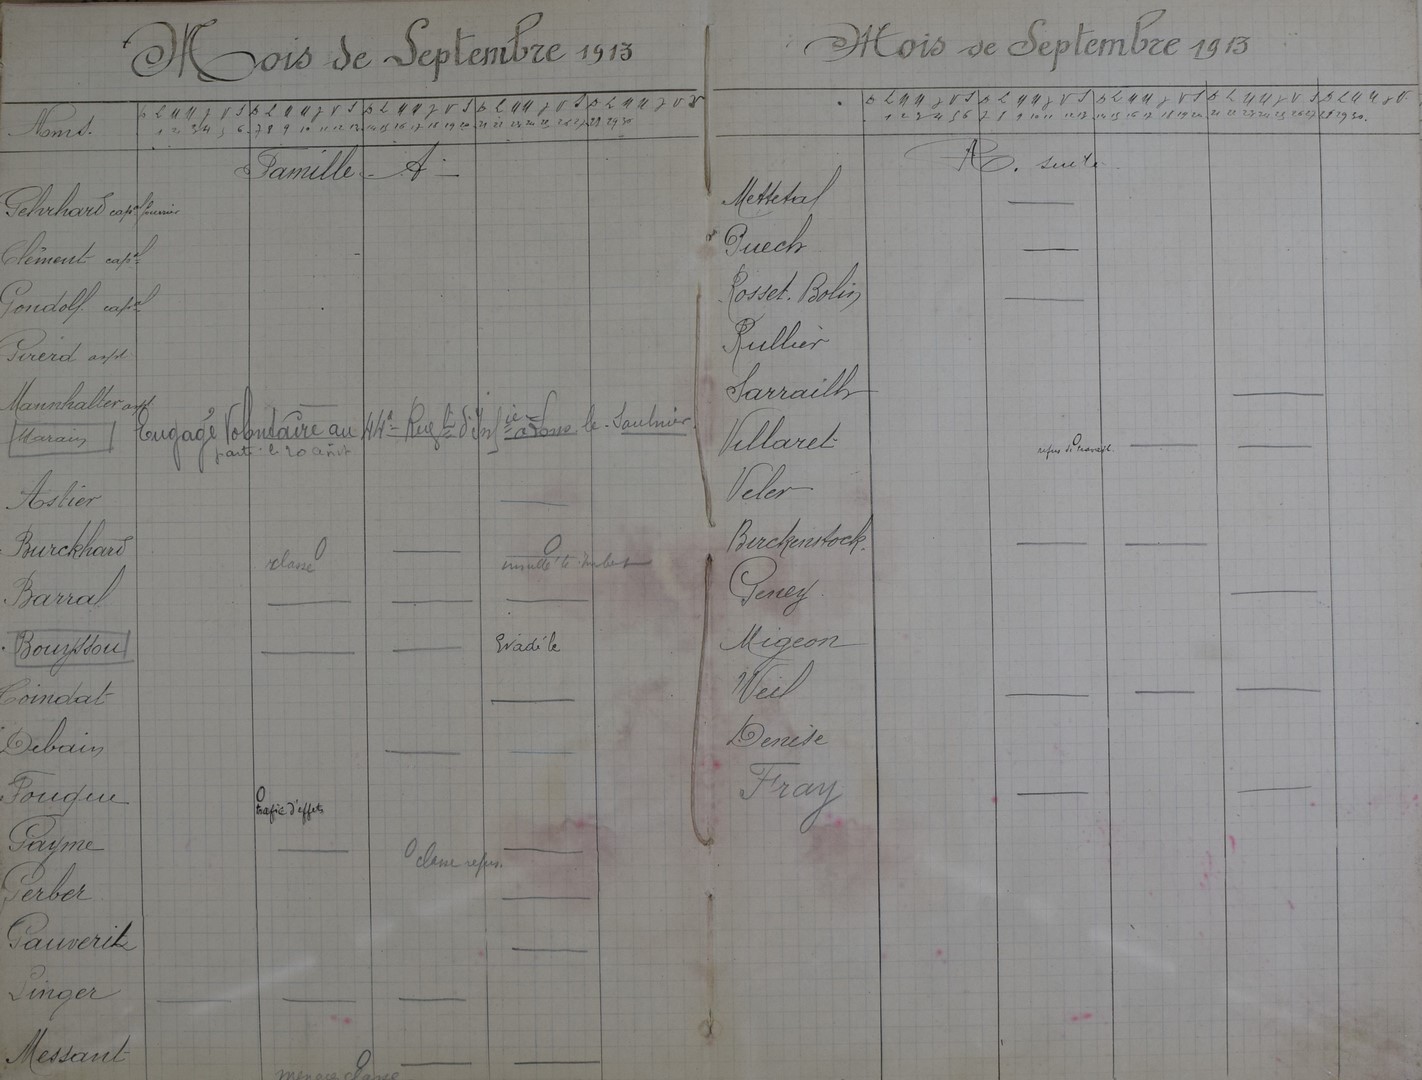 Mois de Septembre 1913
Noms.
D L M M J V S D L M M J V S D L M M J V S D L M M J V S D L M M J V S
1 2 3 4 5 6 7 8 9 10 11 12 13 14 15 16 17 18 19 20 21 22 23 24 25 26 27 28 29 30
Famille A
Gehrhard capal
Clément capal
Gondolf capal
Girerd aspt
Mannhalter aspt
Marain Engagé Volontaire au 44e Regt d'Infie à Lons le-Saulnier.
parti le 20 août
Astier
Burckhard classe 0 0
Barral
Bouyssou Evadé le
Coindat
Debain
Fouque 0 trafic d'effets
Gayme 0 classe refus.
Gerber
Gauverit
Linger
Messant 0 menace classe
Mois de Septembre 1913
D L M M J V S D L M M J V S D L M M J V S D L M M J V S D L M M J V
1 2 3 4 5 6 7 8 9 10 11 12 13 14 15 16 17 18 19 20 21 22 23 24 25 26 27 28 29 30.
A. suite
Mettetal
Puech
Rosset. Bolin
Rullier
Sarrailh
Villaret 0 refus de travail.
Veler
Birckenstock.
Geney
Migeon
Weil
Denise
Fray